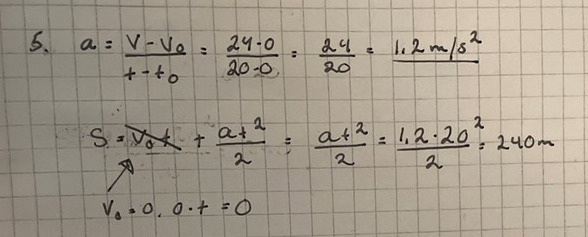 5. a = V - V₀ / t - t₀ = 24-0 / 20-0 = 24 / 20 = 1,2 m/s²
S = V₀t + at² / 2 = at² / 2 = 1,2 · 20² / 2 = 240m
V₀ = 0, 0 · t = 0